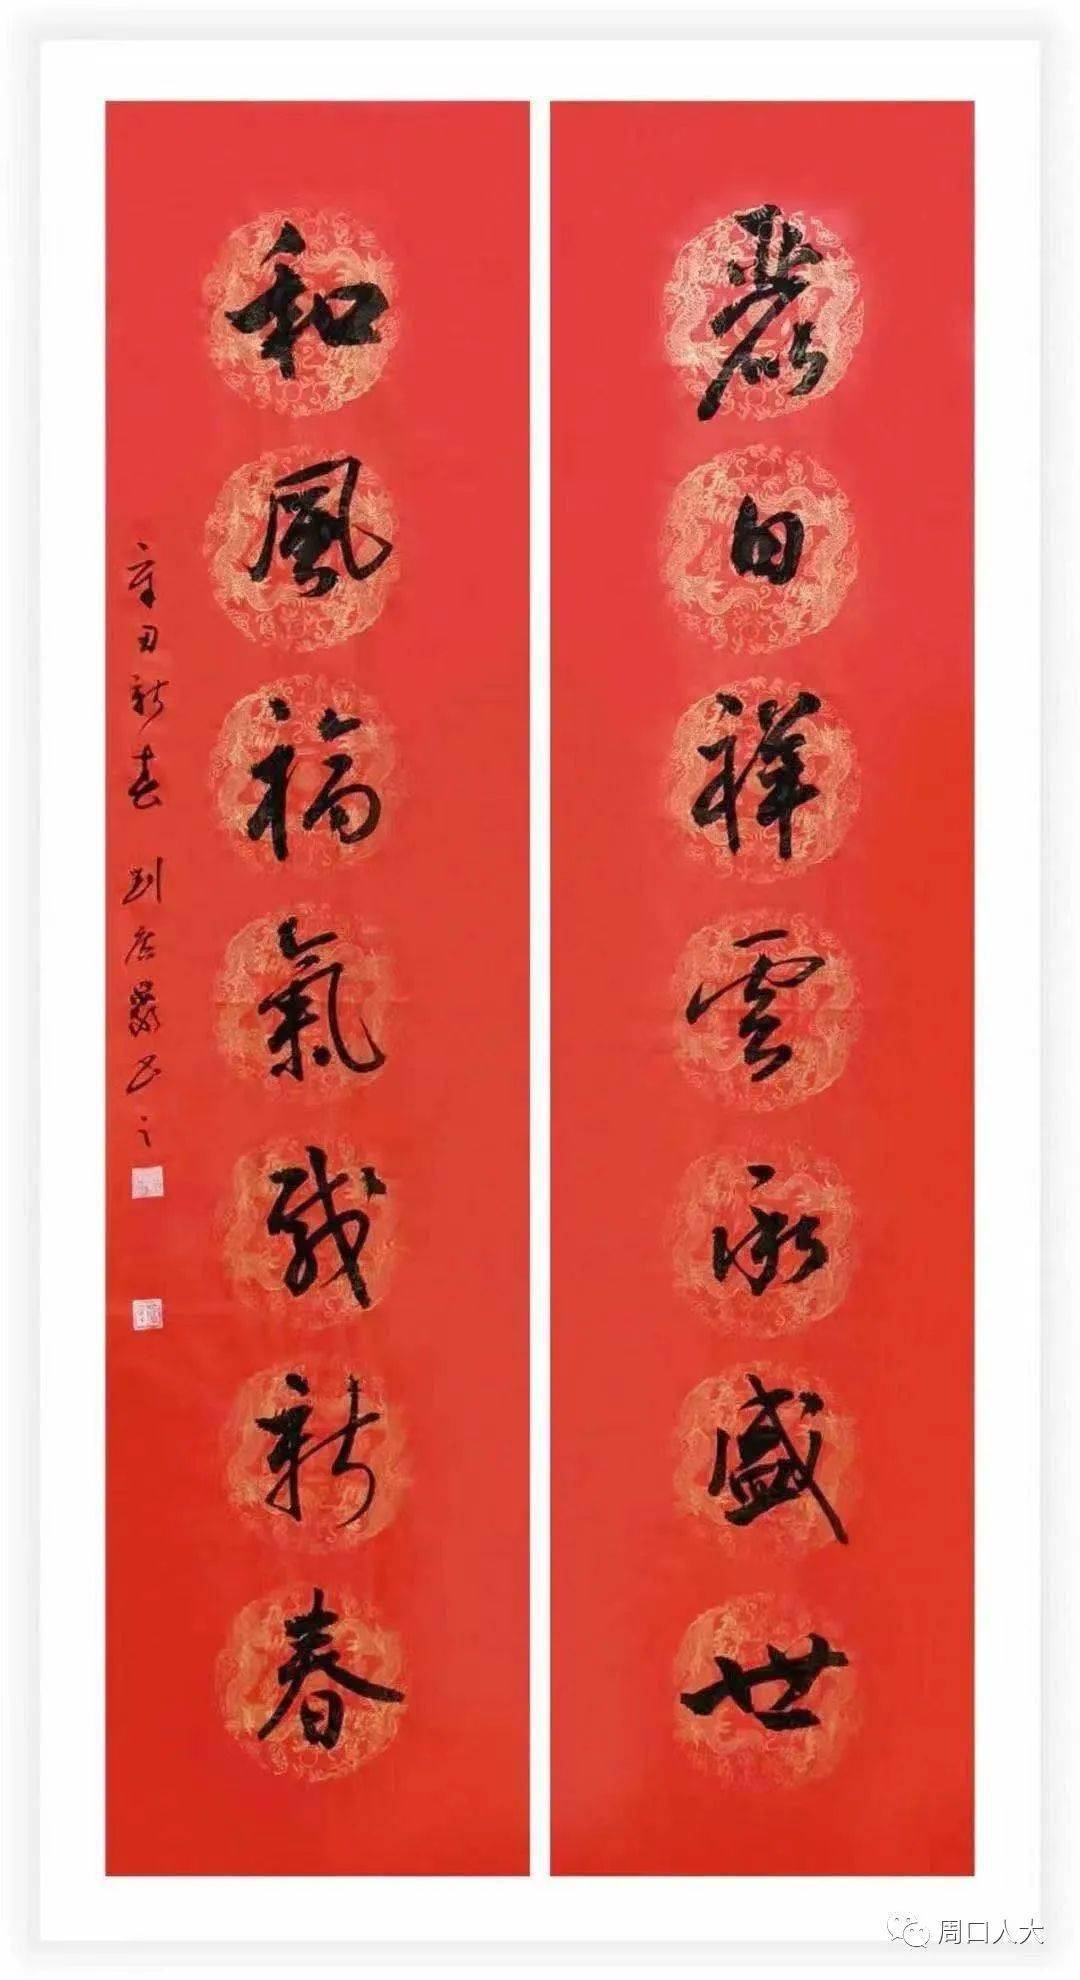 麗日祥雲承盛世
和風福氣載新春
辛丑新春 刘 书之
周口人大